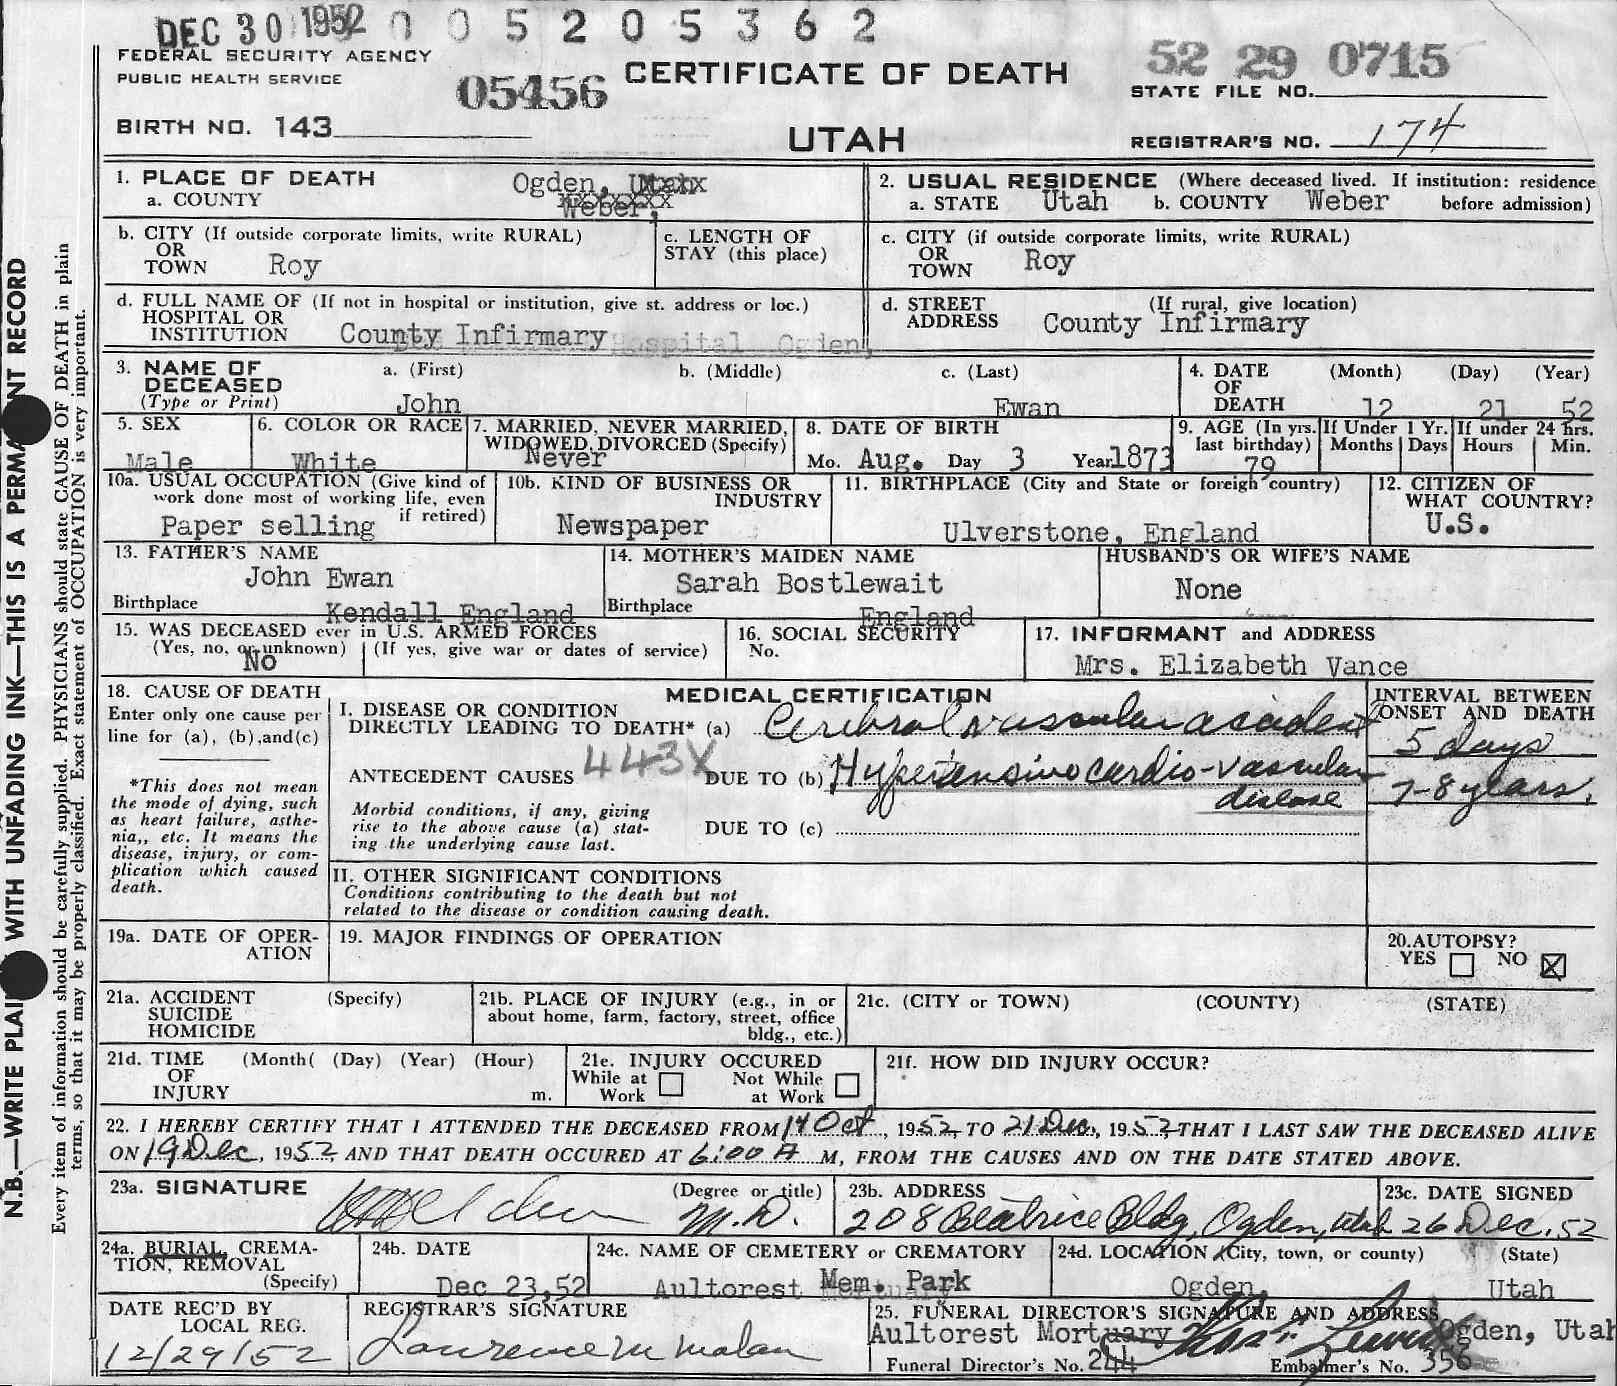 DEC 30 1952 0 0 5 2 0 5 3 6 2
FEDERAL SECURITY AGENCY
PUBLIC HEALTH SERVICE
05456
CERTIFICATE OF DEATH
52 29 0715
STATE FILE NO.
BIRTH NO. 143
UTAH
REGISTRAR'S NO. 174
1. PLACE OF DEATH
a. COUNTY
Ogden, Utah
Weber,
2. USUAL RESIDENCE (Where deceased lived. If institution: residence
a. STATE Utah b. COUNTY Weber before admission)
b. CITY (If outside corporate limits, write RURAL)
OR
TOWN Roy
c. LENGTH OF
STAY (this place)
c. CITY (if outside corporate limits, write RURAL)
OR
TOWN Roy
d. FULL NAME OF (If not in hospital or institution, give st. address or loc.)
HOSPITAL OR
INSTITUTION County Infirmary Hospital Ogden,
d. STREET (If rural, give location)
ADDRESS County Infirmary
3. NAME OF
DECEASED
(Type or Print)
a. (First) b. (Middle) c. (Last)
John Ewan
4. DATE (Month) (Day) (Year)
OF
DEATH 12 21 52
5. SEX
Male
6. COLOR OR RACE
White
7. MARRIED, NEVER MARRIED,
WIDOWED, DIVORCED (Specify)
Never
8. DATE OF BIRTH
Mo. Aug. Day 3 Year 1873
9. AGE (In yrs.
last birthday)
79
If Under 1 Yr.
Months Days
If under 24 hrs.
Hours Min.
10a. USUAL OCCUPATION (Give kind of
work done most of working life, even
if retired)
Paper selling
10b. KIND OF BUSINESS OR
INDUSTRY
Newspaper
11. BIRTHPLACE (City and State or foreign country)
Ulverstone, England
12. CITIZEN OF
WHAT COUNTRY?
U.S.
13. FATHER'S NAME
John Ewan
Birthplace Kendall England
14. MOTHER'S MAIDEN NAME
Sarah Bostlewait
Birthplace England
HUSBAND'S OR WIFE'S NAME
None
15. WAS DECEASED ever in U.S. ARMED FORCES
(Yes, no, or unknown) (If yes, give war or dates of service)
No
16. SOCIAL SECURITY
No.
17. INFORMANT and ADDRESS
Mrs. Elizabeth Vance
18. CAUSE OF DEATH
Enter only one cause per
line for (a), (b), and (c)
*This does not mean
the mode of dying, such
as heart failure, asthe-
nia,, etc. It means the
disease, injury, or com-
plication which caused
death.
MEDICAL CERTIFICATION
I. DISEASE OR CONDITION
DIRECTLY LEADING TO DEATH* (a) Cerebral vascular accident
INTERVAL BETWEEN
ONSET AND DEATH
5 days
ANTECEDENT CAUSES 443X DUE TO (b) Hypertensive cardio-vascular
disease
7-8 years.
Morbid conditions, if any, giving
rise to the above cause (a) stat-
ing the underlying cause last.
DUE TO (c)
II. OTHER SIGNIFICANT CONDITIONS
Conditions contributing to the death but not
related to the disease or condition causing death.
19a. DATE OF OPER-
ATION
19. MAJOR FINDINGS OF OPERATION
20. AUTOPSY?
YES NO X
21a. ACCIDENT (Specify)
SUICIDE
HOMICIDE
21b. PLACE OF INJURY (e.g., in or
about home, farm, factory, street, office
bldg., etc.)
21c. (CITY or TOWN) (COUNTY) (STATE)
21d. TIME (Month( (Day) (Year) (Hour)
OF
INJURY m.
21e. INJURY OCCURED
While at Not While
Work at Work
21f. HOW DID INJURY OCCUR?
22. I HEREBY CERTIFY THAT I ATTENDED THE DECEASED FROM 14 Oct, 1952, TO 21 Dec., 1952, THAT I LAST SAW THE DECEASED ALIVE
ON 19 Dec, 1952, AND THAT DEATH OCCURED AT 6:00 A M, FROM THE CAUSES AND ON THE DATE STATED ABOVE.
23a. SIGNATURE (Degree or title)
M.D.
23b. ADDRESS
208 Beatrice Bldg, Ogden, Utah
23c. DATE SIGNED
26 Dec. 52
24a. BURIAL, CREMA-
TION, REMOVAL
(Specify)
24b. DATE
Dec 23,52
24c. NAME OF CEMETERY or CREMATORY
Aultorest Mem. Park
24d. LOCATION (City, town, or county) (State)
Ogden Utah
DATE REC'D BY
LOCAL REG.
12/29/52
REGISTRAR'S SIGNATURE
Lawrence M Malan
25. FUNERAL DIRECTOR'S SIGNATURE AND ADDRESS
Aultorest Mortuary Ogden, Utah
Funeral Director's No. 244 Embalmer's No. 356
N.B.—WRITE PLAI WITH UNFADING INK—THIS IS A PERMA NT RECORD
Every item of information should be carefully supplied. PHYSICIANS should state CAUSE OF DEATH in plain
terms, so that it may be properly classified. Exact statement of OCCUPATION is very important.